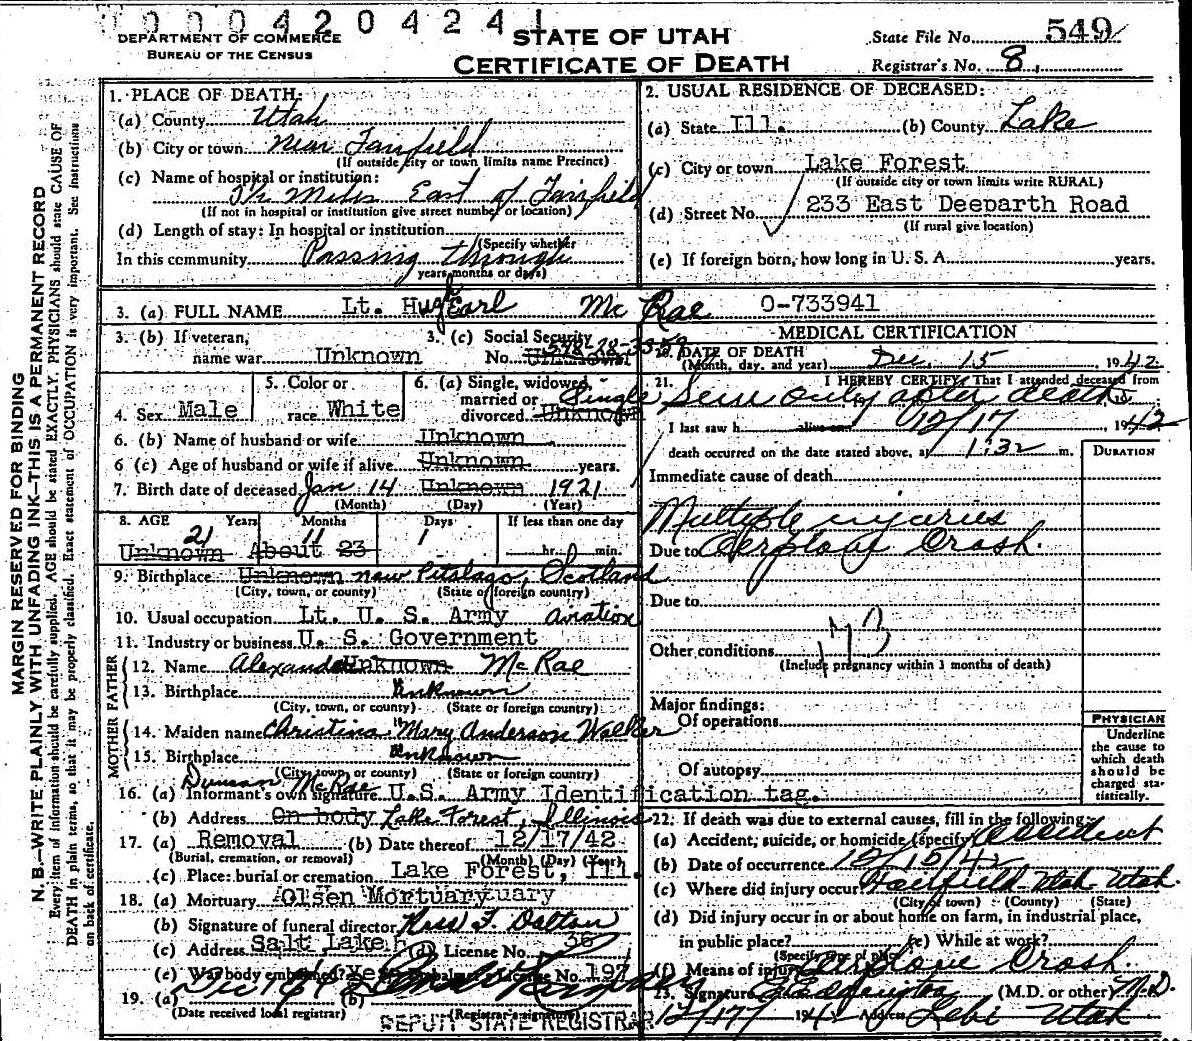 0000420424
DEPARTMENT OF COMMERCE
BUREAU OF THE CENSUS
STATE OF UTAH
CERTIFICATE OF DEATH
State File No. 549
Registrar's No. 8
MARGIN RESERVED FOR BINDING
N. B.—WRITE PLAINLY, WITH UNFADING INK—THIS IS A PERMANENT RECORD
Every item of information should be carefully supplied. AGE should be stated EXACTLY. PHYSICIANS should state CAUSE OF
DEATH in plain terms, so that it may be properly classified. Exact statement of OCCUPATION is very important. See instructions
on back of certificate.
1. PLACE OF DEATH:
(a) County Utah
(b) City or town Near Fairfield
(If outside city or town limits name Precinct)
(c) Name of hospital or institution:
3½ Miles East of Fairfield
(If not in hospital or institution give street number or location)
(d) Length of stay: In hospital or institution
(Specify whether
In this community Passing through
years, months or days)
2. USUAL RESIDENCE OF DECEASED:
(a) State Ill. (b) County Lake
(c) City or town Lake Forest
(If outside city or town limits write RURAL)
(d) Street No. 233 East Deeparth Road
(If rural give location)
(e) If foreign born, how long in U. S. A. years.
3. (a) FULL NAME Lt. Hugh Earl Mc Rae O-733941
3. (b) If veteran,
name war Unknown
3. (c) Social Security
No. Unknown
4. Sex Male
5. Color or
race White
6. (a) Single, widowed,
married or
divorced Unknown Single
6. (b) Name of husband or wife Unknown
6 (c) Age of husband or wife if alive Unknown years.
7. Birth date of deceased Jan 14 Unknown 1921
(Month) (Day) (Year)
8. AGE Years Months Days If less than one day
21 11 1
Unknown About 23 hr. min.
9. Birthplace Unknown near Scotland
(City, town, or county) (State or foreign country)
10. Usual occupation Lt. U. S. Army Aviation
11. Industry or business U. S. Government
FATHER
12. Name Alexander Unknown McRae
13. Birthplace Unknown
(City, town, or county) (State or foreign country)
MOTHER
14. Maiden name Christina Mary Anderson Walker
15. Birthplace Unknown
(City, town, or county) (State or foreign country)
Duncan McRae
16. (a) Informant's own signature U.S. Army Identification tag.
(b) Address On body Lake Forest, Illinois
17. (a) Removal (b) Date thereof 12/17/42
(Burial, cremation, or removal) (Month) (Day) (Year)
(c) Place: burial or cremation Lake Forest, Ill.
18. (a) Mortuary Olsen Mortuary
(b) Signature of funeral director Dalton
(c) Address Salt Lake (d) License No. 36
(e) Was body embalmed? Yes License No. 191
19. (a) (b)
(Date received local registrar) (Registrar's signature)
DEPUTY STATE REGISTRAR
MEDICAL CERTIFICATION
20. DATE OF DEATH
(Month, day, and year) Dec. 15, 1942
21. I HEREBY CERTIFY That I attended deceased from
Seen only after death
I last saw h alive on 12/17, 1942
death occurred on the date stated above, at 1:32 m.
DURATION
Immediate cause of death
Multiple injuries
Due to Aerplane Crash.
Due to
Other conditions
(Include pregnancy within 3 months of death)
Major findings:
Of operations
Of autopsy
PHYSICIAN
Underline
the cause to
which death
should be
charged sta-
tistically.
22. If death was due to external causes, fill in the following:
(a) Accident, suicide, or homicide (specify) Accident
(b) Date of occurrence 12/15/42
(c) Where did injury occur Fairfield Utah Utah.
(City or town) (County) (State)
(d) Did injury occur in or about home on farm, in industrial place,
in public place? (e) While at work?
(Specify type of place)
(f) Means of injury Airplane Crash.
23. Signature (M.D. or other) M.D.
12/17/ 194 Address Lehi Utah